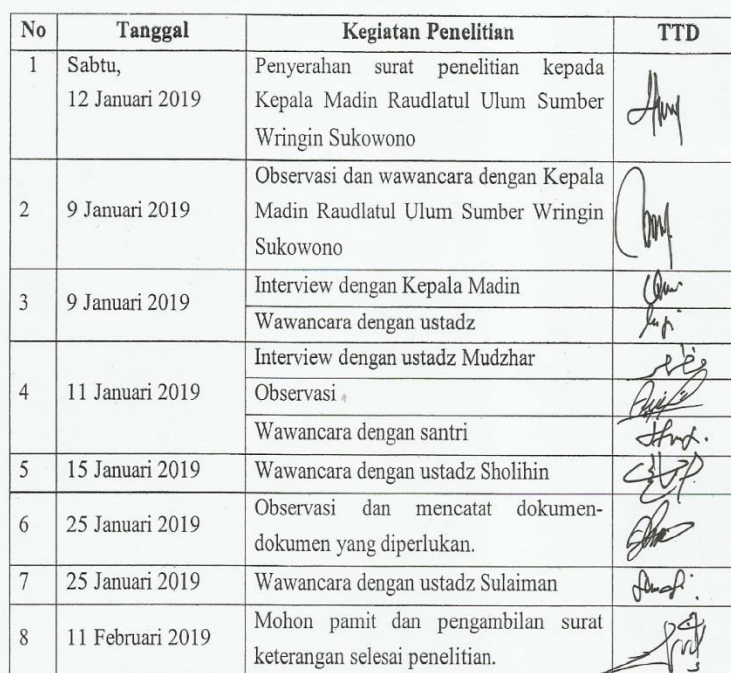 No Tanggal Kegiatan Penelitian TTD
1 Sabtu, Penyerahan surat penelitian kepada
12 Januari 2019 Kepala Madin Raudlatul Ulum Sumber
Wringin Sukowono
Observasi dan wawancara dengan Kepala
2 9 Januari 2019 Madin Raudlatul Ulum Sumber Wringin
Sukowono
3 9 Januari 2019 Interview dengan Kepala Madin
Wawancara dengan ustadz
Interview dengan ustadz Mudzhar
4 11 Januari 2019 Observasi
Wawancara dengan santri
5 15 Januari 2019 Wawancara dengan ustadz Sholihin
6 25 Januari 2019 Observasi dan mencatat dokumen-
dokumen yang diperlukan.
7 25 Januari 2019 Wawancara dengan ustadz Sulaiman
8 11 Februari 2019 Mohon pamit dan pengambilan surat
keterangan selesai penelitian.